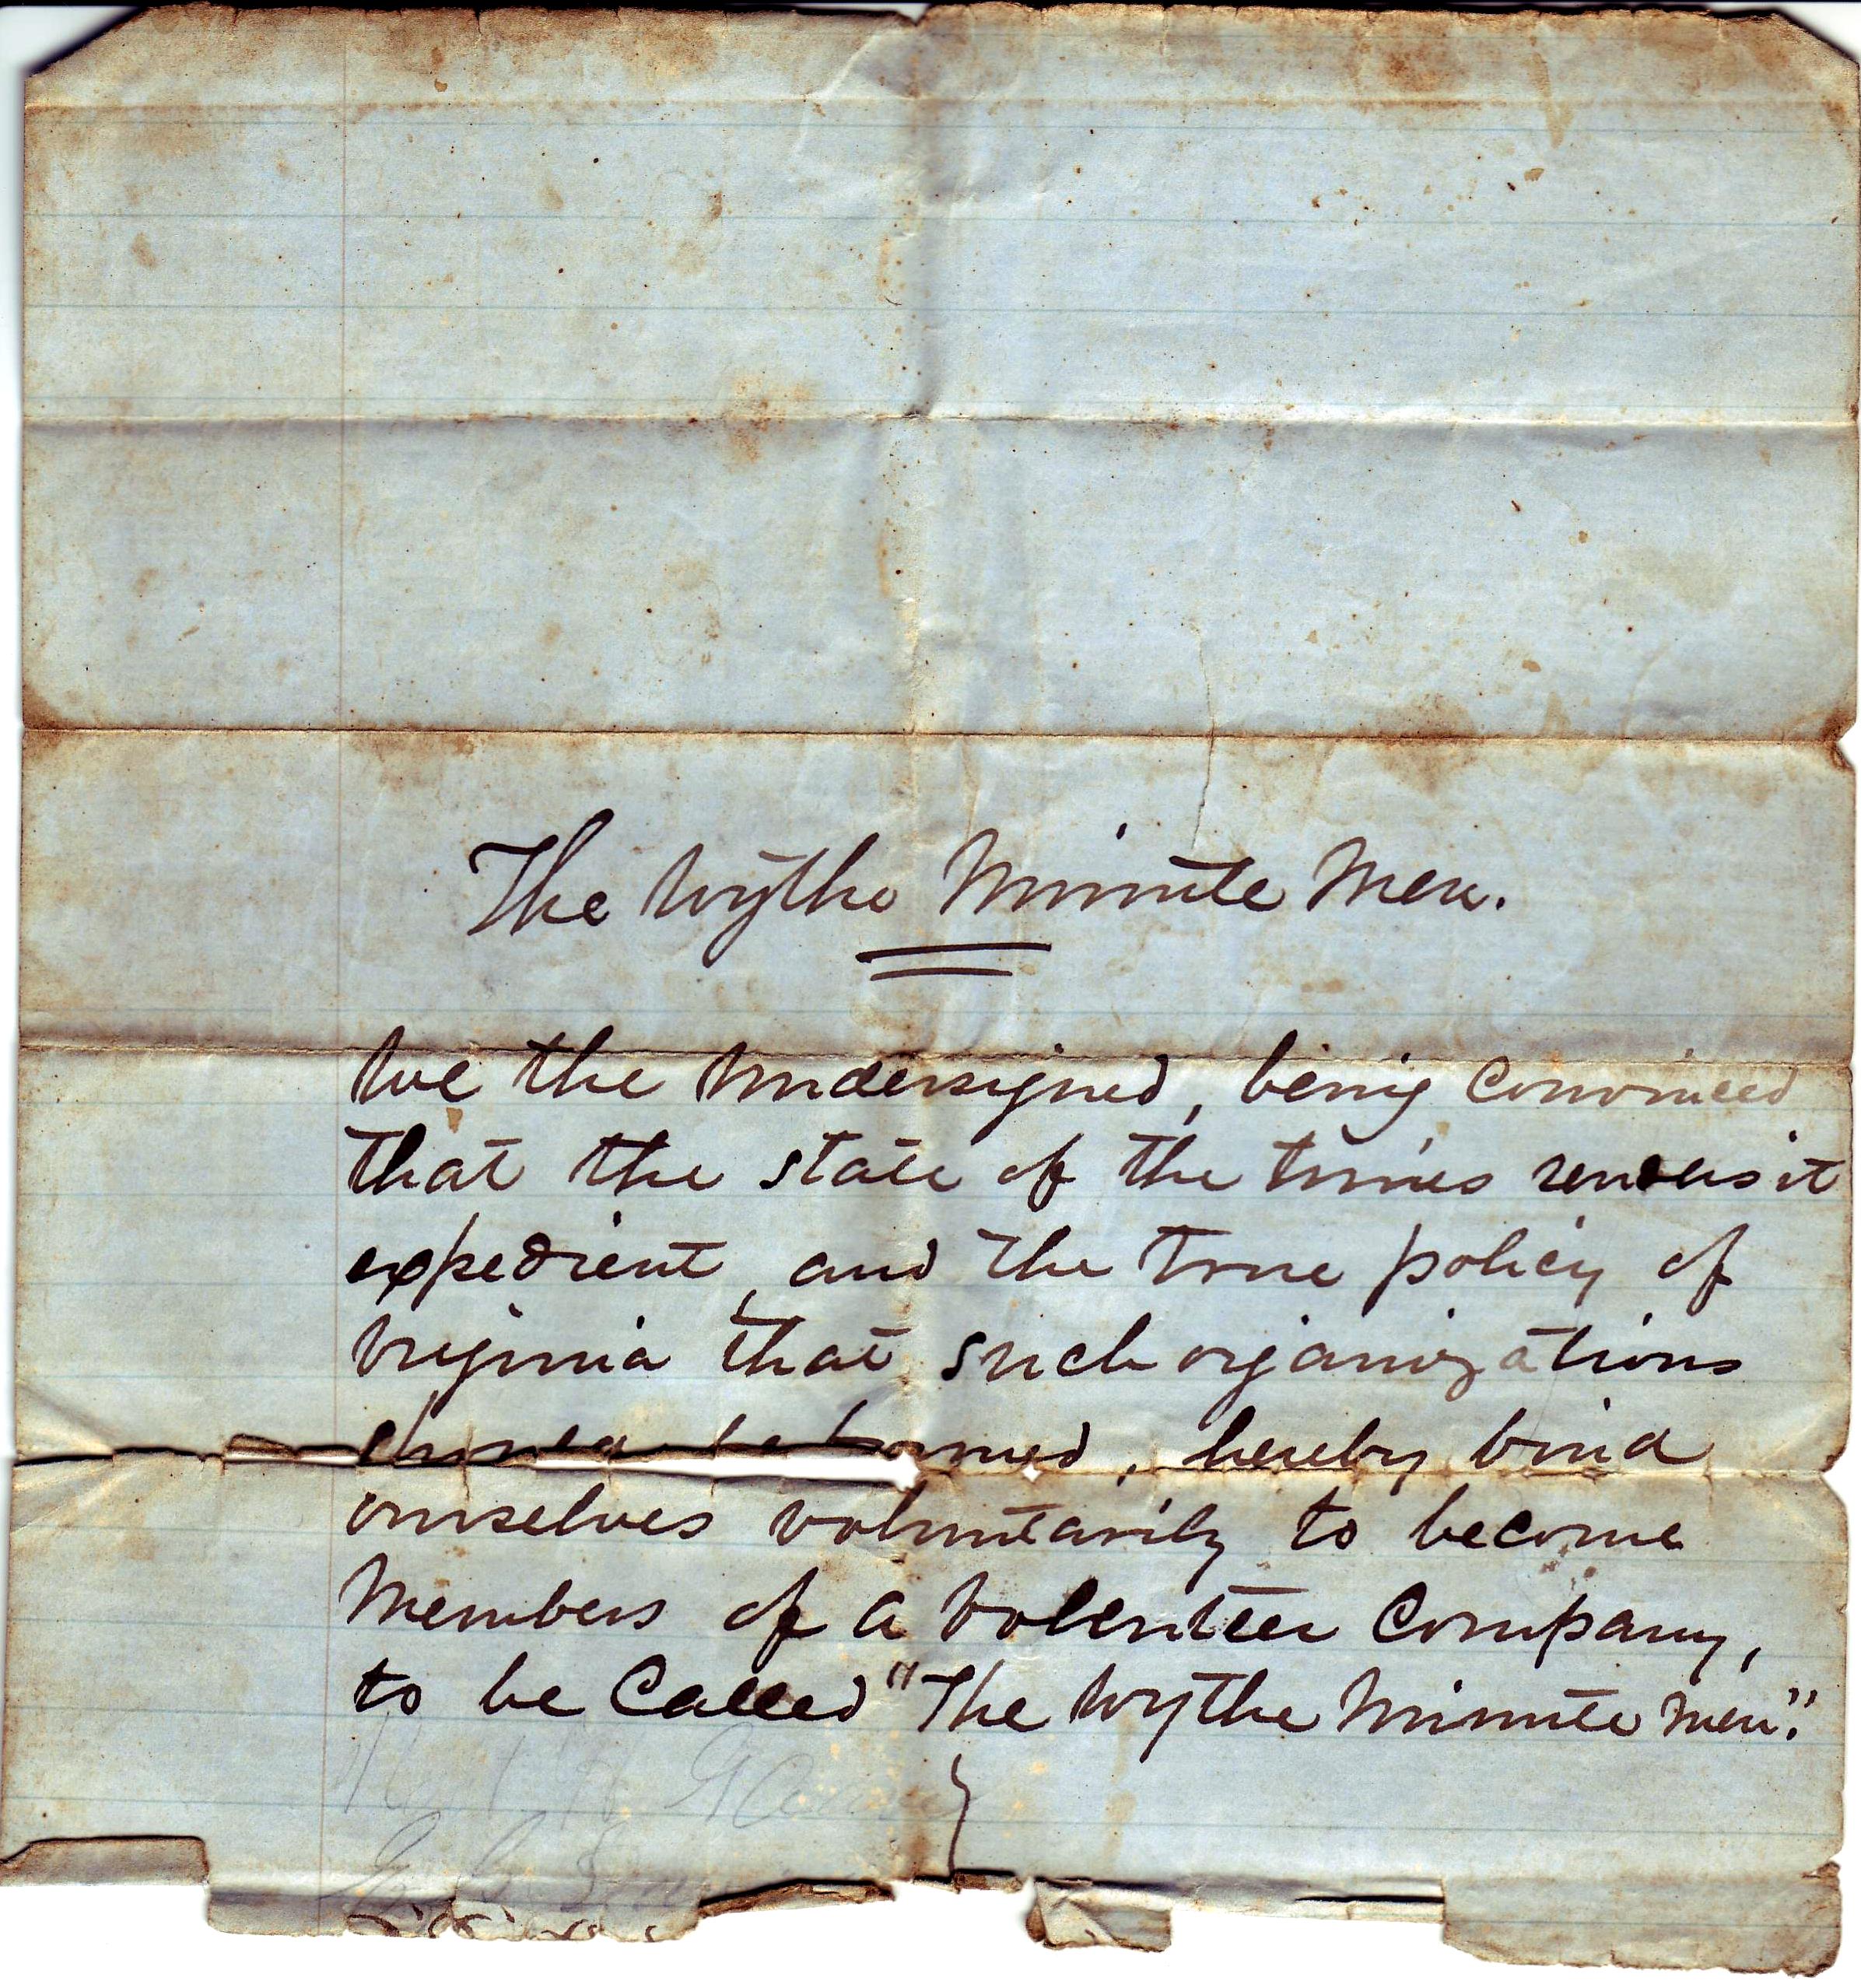 The Wythe Minute Men.
We the undersigned, being convinced
that the state of the times renders it
expedient, and the true policy of
Virginia that such organizations
should be formed, hereby bind
ourselves voluntarily to become
Members of a Volenteer Company,
to be Called "The Wythe Minute Men."